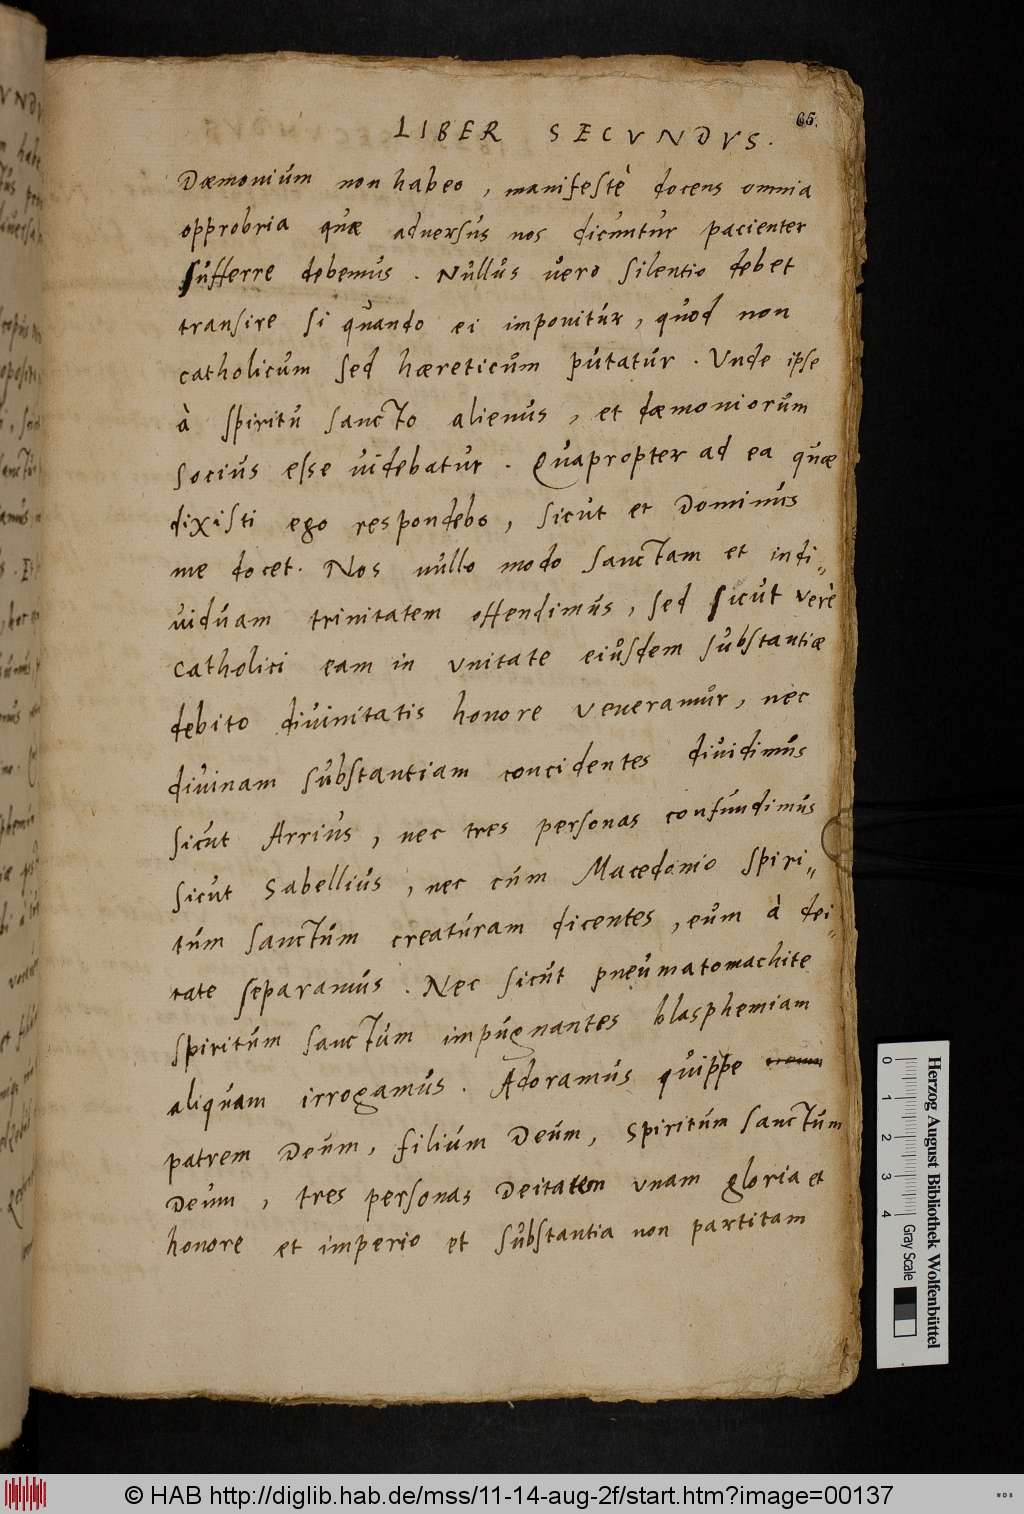 65.
LIBER SECVNDVS.
Dæmonium non habeo, manifestè docens omnia
opprobria quæ aduersus nos dicuntur pacienter
sufferre debemus. Nullus vero silentio debet
transire si quando ei imponitur, quod non
catholicum sed hæreticum putatur. Vnde ipse
à spiritu sancto alienus, et dæmoniorum
socius esse uidebatur. Quapropter ad ea quæ
dixisti ego respondebo, sicut et Dominus
me docet. Nos nullo modo sanctam et indi„
uiduam trinitatem offendimus, sed sicut verè
catholici eam in vnitate eiusdem substantiæ
debito diuinitatis honore veneramur, nec
diuinam substantiam concidentes diuidimus
sicut Arrius, nec tres personas confundimus
sicut Sabellius, nec cum Macedonio spiri„
tum sanctum creaturam dicentes, eum à dei„
tate separamus. Nec sicut pneumatomachite
spiritum sanctum impugnantes blasphemiam
aliquam irrogamus. Adoramus quippe
patrem Deum, filium Deum, spiritum sanctum
Deum, tres personas Deitatem vnam gloria et
honore et imperio et substantia non partitam
Herzog August Bibliothek Wolfenbüttel
0 1 2 3 4 Gray Scale
© HAB http://diglib.hab.de/mss/11-14-aug-2f/start.htm?image=00137